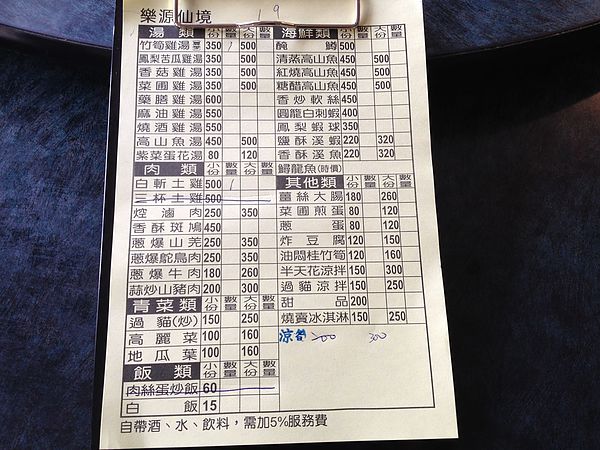 樂源仙境 19
湯類 小份 數量 大份 數量
竹筍雞湯 350 1 500
鳳梨苦瓜雞湯 350 500
香菇雞湯 350 500
菜圃雞湯 350 500
藥膳雞湯 600
麻油雞湯 550
燒酒雞湯 550
高山魚湯 450 500
紫菜蛋花湯 80 120
肉類 小份 數量 大份 數量
白斬土雞 500 1
三杯土雞 500
焢滷肉 250 350
香酥斑鳩 450
蔥爆山羌 250 350
蔥爆鴕鳥肉 250 350
蔥爆牛肉 180 260
蒜炒山豬肉 200 300
青菜類 小份 數量 大份 數量
過貓(炒) 150 250
高麗菜 100 160
地瓜葉 100 160
飯類 小份 數量 大份 數量
肉絲蛋炒飯 60
白飯 15
海鮮類 小份 數量 大份 數量
醃鱘 500
清蒸高山魚 450 500
紅燒高山魚 450 500
糖醋高山魚 450 500
香炒軟絲 450
圓龍白刺蝦 400
鳳梨蝦球 350
鹽酥溪魚 220 320
香酥溪魚 220 320
鱘龍魚(時價)
其他類 小份 數量 大份 數量
薑絲大腸 180 260
菜圃煎蛋 80 120
蔥蛋 80 120
炸豆腐 120 150
油悶桂竹筍 120 160
半天花涼拌 150 300
過貓涼拌 150 250
甜品 200
燒賣冰淇淋 150 250
涼筍 200 300
自帶酒、水、飲料，需加5%服務費